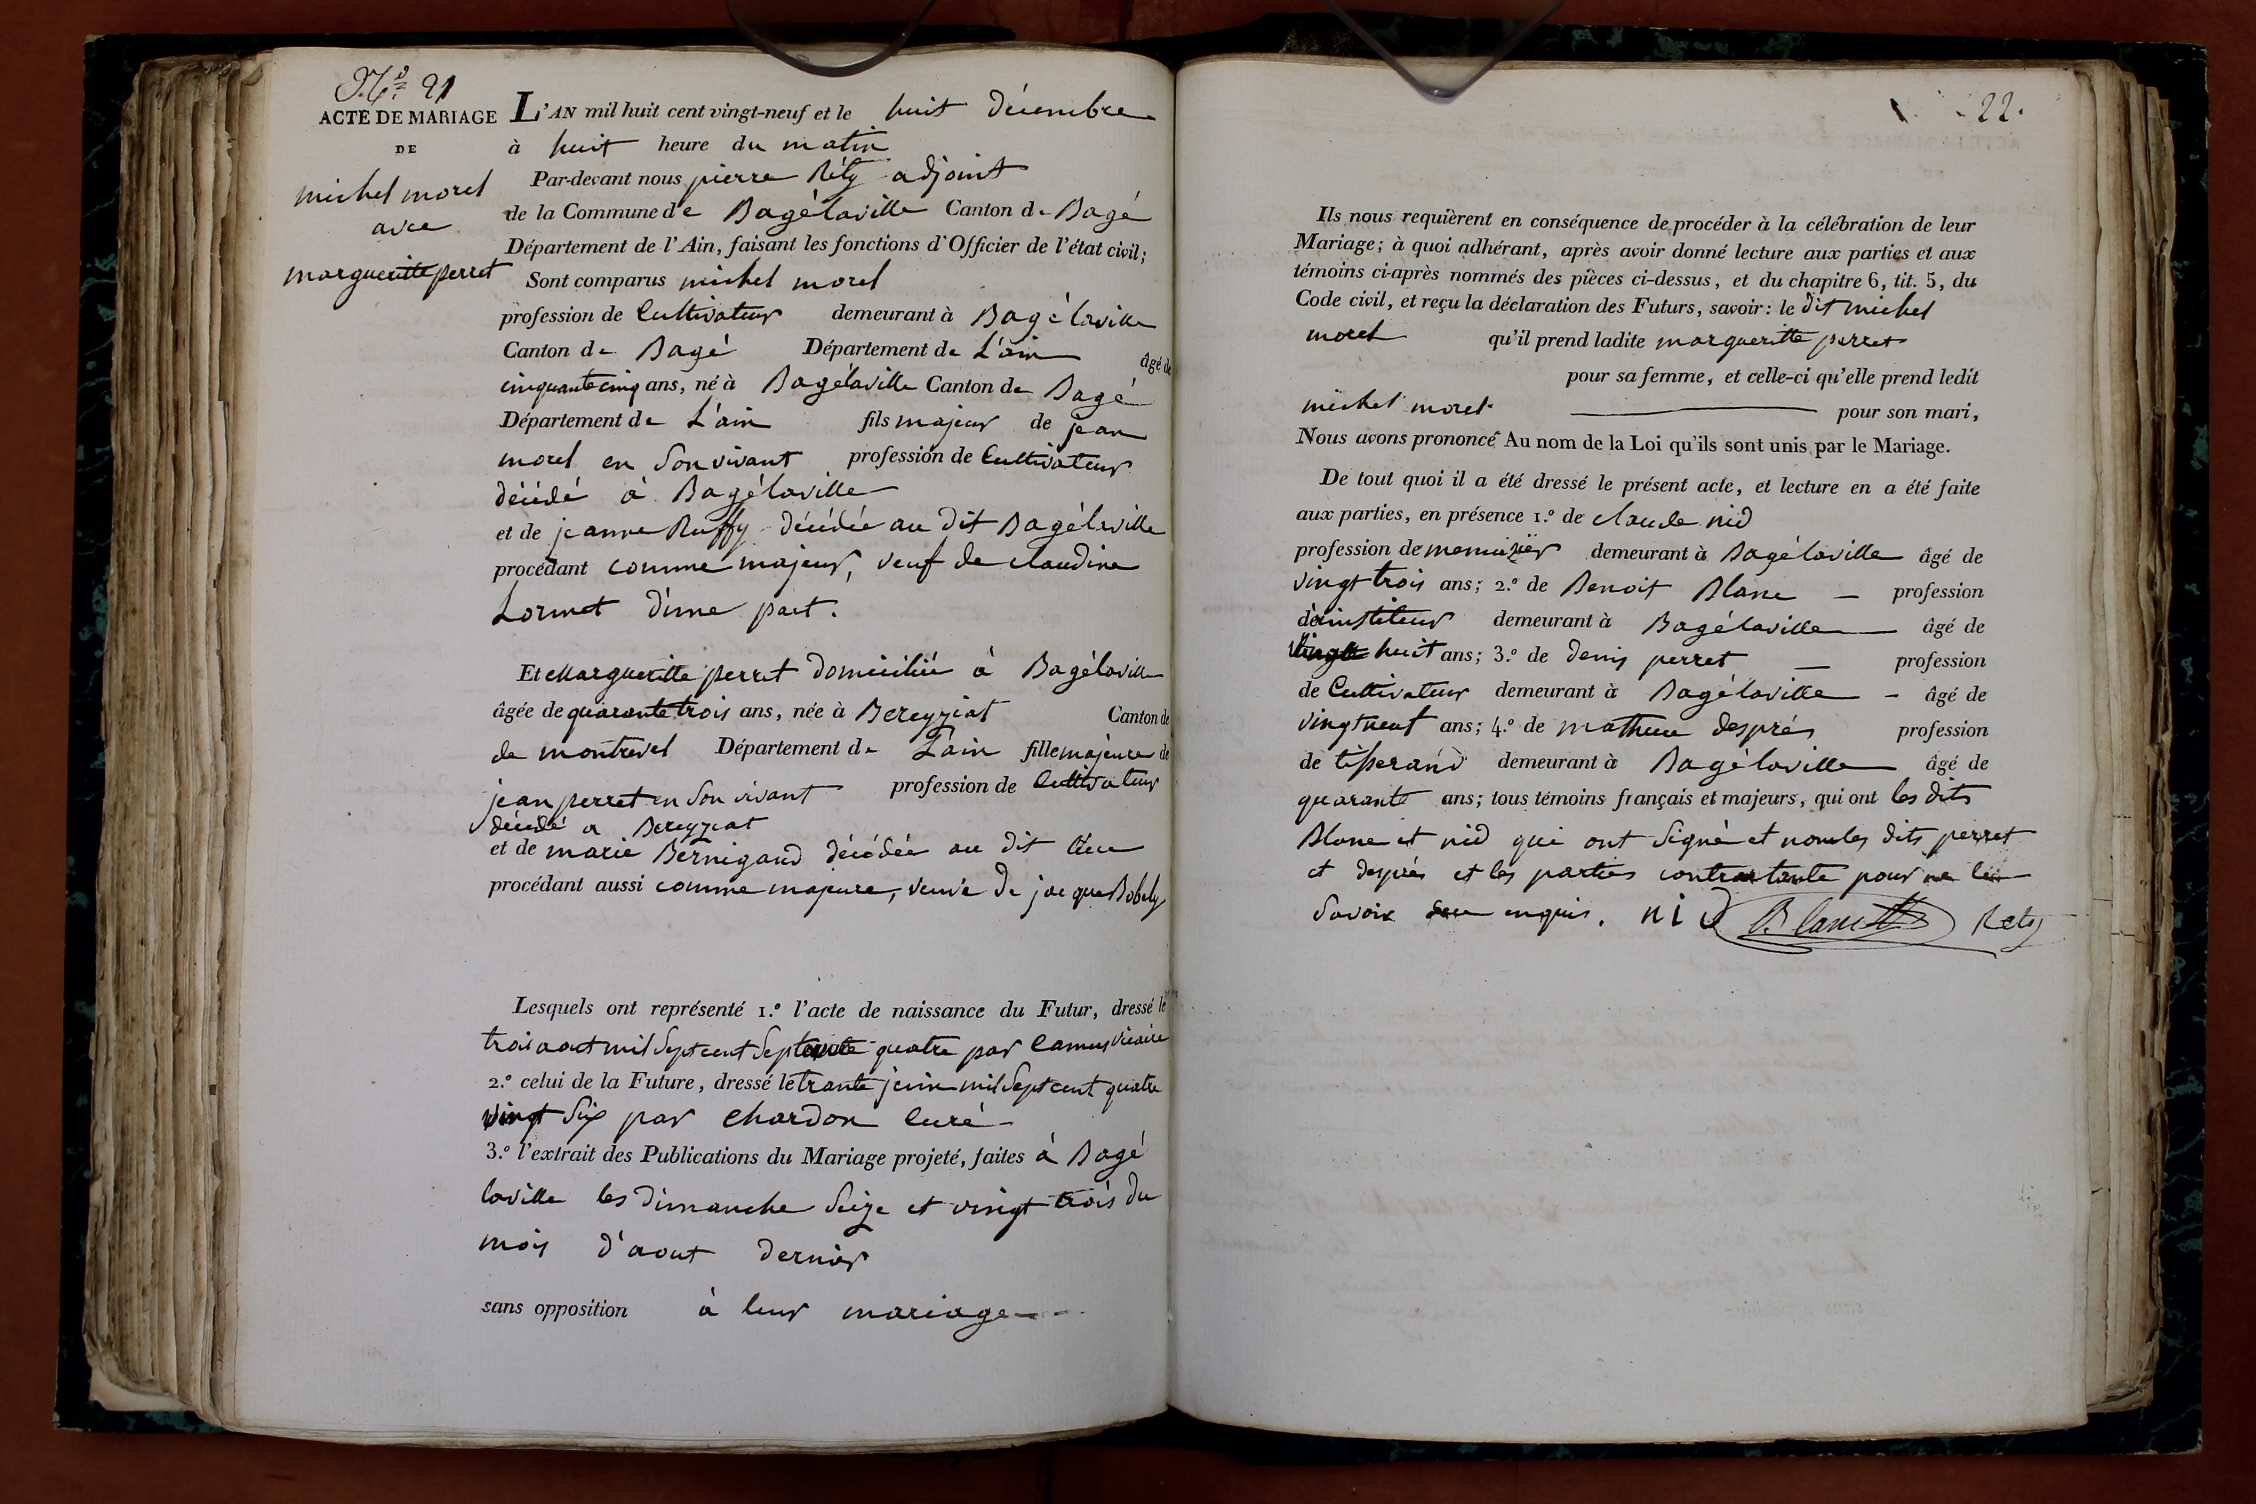 N.º 21
ACTE DE MARIAGE
DE
michel morel
avec
margueritte perret
L'AN mil huit cent vingt-neuf et le huit décembre
à huit heure du matin
Par-devant nous pierre Réty adjoint
de la Commune de Bagélaville Canton de Bagé
Département de l'Ain, faisant les fonctions d'Officier de l'état civil;
Sont comparus michel morel
profession de Cultivateur demeurant à Bagélaville
Canton de Bagé Département de L'ain âgé de
cinquante cinq ans, né à Bagélaville Canton de Bagé
Département de L'ain fils majeur de jean
morel en Son vivant profession de Cultivateur
décédé à Bagélaville
et de jeanne Ruffy décédée au dit Bagélaville
procédant comme majeur, veuf de claudine
Lormet d'une part.
Et Margueritte perret domiciliée à Bagélaville
âgée de quarante trois ans, née à Bereyziat Canton de
de montrevel Département de L'ain fille majeure de
jean perret en Son vivant profession de Cultivateur
décédé a Bereyziat
et de marie Bernigaud décédée au dit lieu
procédant aussi comme majeure, veuve de jacque Bobely
Lesquels ont représenté 1.º l'acte de naissance du Futur, dressé le
trois aout mil Sept cent Septente quatre par Camus vicaire
2.º celui de la Future, dressé le trante juin mil Sept cent quatre
vingt Six par Chardon Curé
3.º l'extrait des Publications du Mariage projeté, faites à Bagé
laville les dimanche Seize et vingt trois du
mois d'aout dernier
sans opposition à leur mariage
22.
Ils nous requièrent en conséquence de procéder à la célébration de leur
Mariage; à quoi adhérant, après avoir donné lecture aux parties et aux
témoins ci-après nommés des pièces ci-dessus, et du chapitre 6, tit. 5, du
Code civil, et reçu la déclaration des Futurs, savoir: le dit michel
morel qu'il prend ladite margueritte perret
pour sa femme, et celle-ci qu'elle prend ledit
michel morel pour son mari,
Nous avons prononcé Au nom de la Loi qu'ils sont unis par le Mariage.
De tout quoi il a été dressé le présent acte, et lecture en a été faite
aux parties, en présence 1.º de claude nid
profession de menuizier demeurant à Bagélaville âgé de
vingt trois ans; 2.º de Benoit Blanc profession
d'instituteur demeurant à Bagélaville âgé de
huit ans; 3.º de denis perret profession
de Cultivateur demeurant à Bagélaville âgé de
vingt neuf ans; 4.º de mathieu després profession
de tisserand demeurant à Bagélaville âgé de
quarante ans; tous témoins français et majeurs, qui ont les dits
Blanc et nid qui ont Signé et non les dits perret
et després et les parties contractante pour ne le
Savoir enquis. nid Blanc Rety